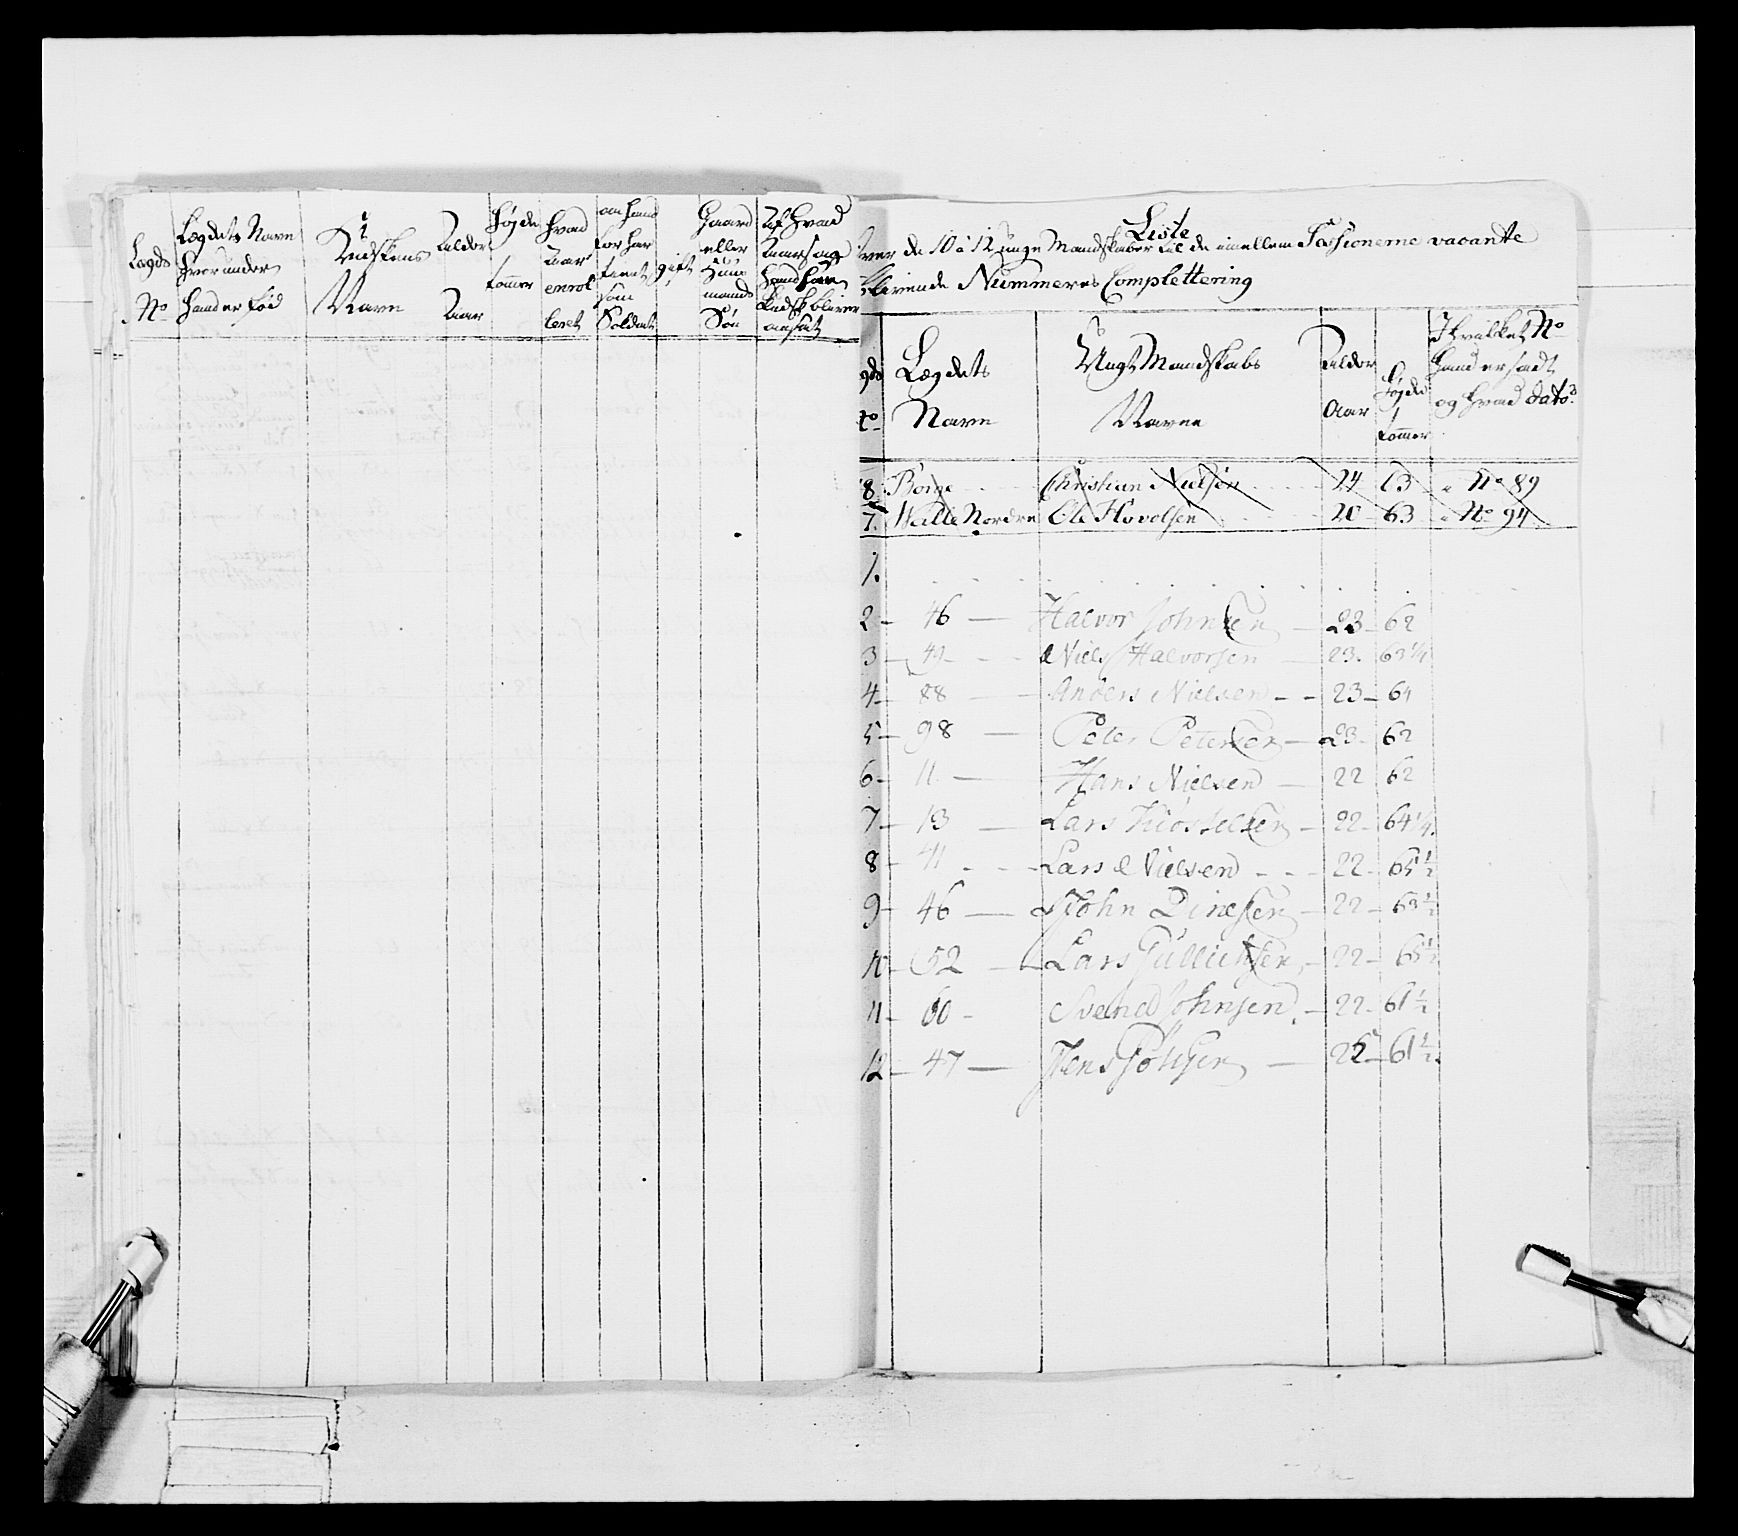 Lægds
No
Lægdets Navn
hvorunder
hand er fød
Navn
Alder
Aar
Høyde
tommer
hvad
Aar
enrol
leret
om hand
for har
tient
som
Soldat
gift
Gaard
eller
Huus
mands
Søn
Af hvad
Aarsag
hand
bliver
ansat
Liste
over de 10 a 12 unge Mandskaber til de imellem Sessionerne vacante
blivende Nummeres Complettering
Lægdets
Navn
Ungt Mandskabs
Navne
Alder
Aar
Høyde
tommer
I hvilket No
hand er sadt
og hvad dato
8 Borge Christian Nielsen 24 63 No 89
7. Walle Nordre Ole Hovolsen 20 63 No 94
1.
2 - 46 - Halvor Johnsen - 23 - 62
3 - 41 - Niels Halvorsen - 23. 63 1/4
4 - 88 - Anders Nielsen - - 23 - 64
5 - 98 - Peter Petersen - 23 - 62
6 - 11 - Hans Nielsen - 22 62
7 - 13 - Lars - 22 - 64 1/4.
8 - 41 - Lars Nielsen - - 22 - 65 1/2
9 - 46 - John Dinesen - 22 - 63 1/2
10 - 52 - Lars Gullichsen, - 22 - 65 1/2
11 - 60 - Svend Johnsen. - 22 - 61 1/2
12 - 47 - Jens - 61 1/2.